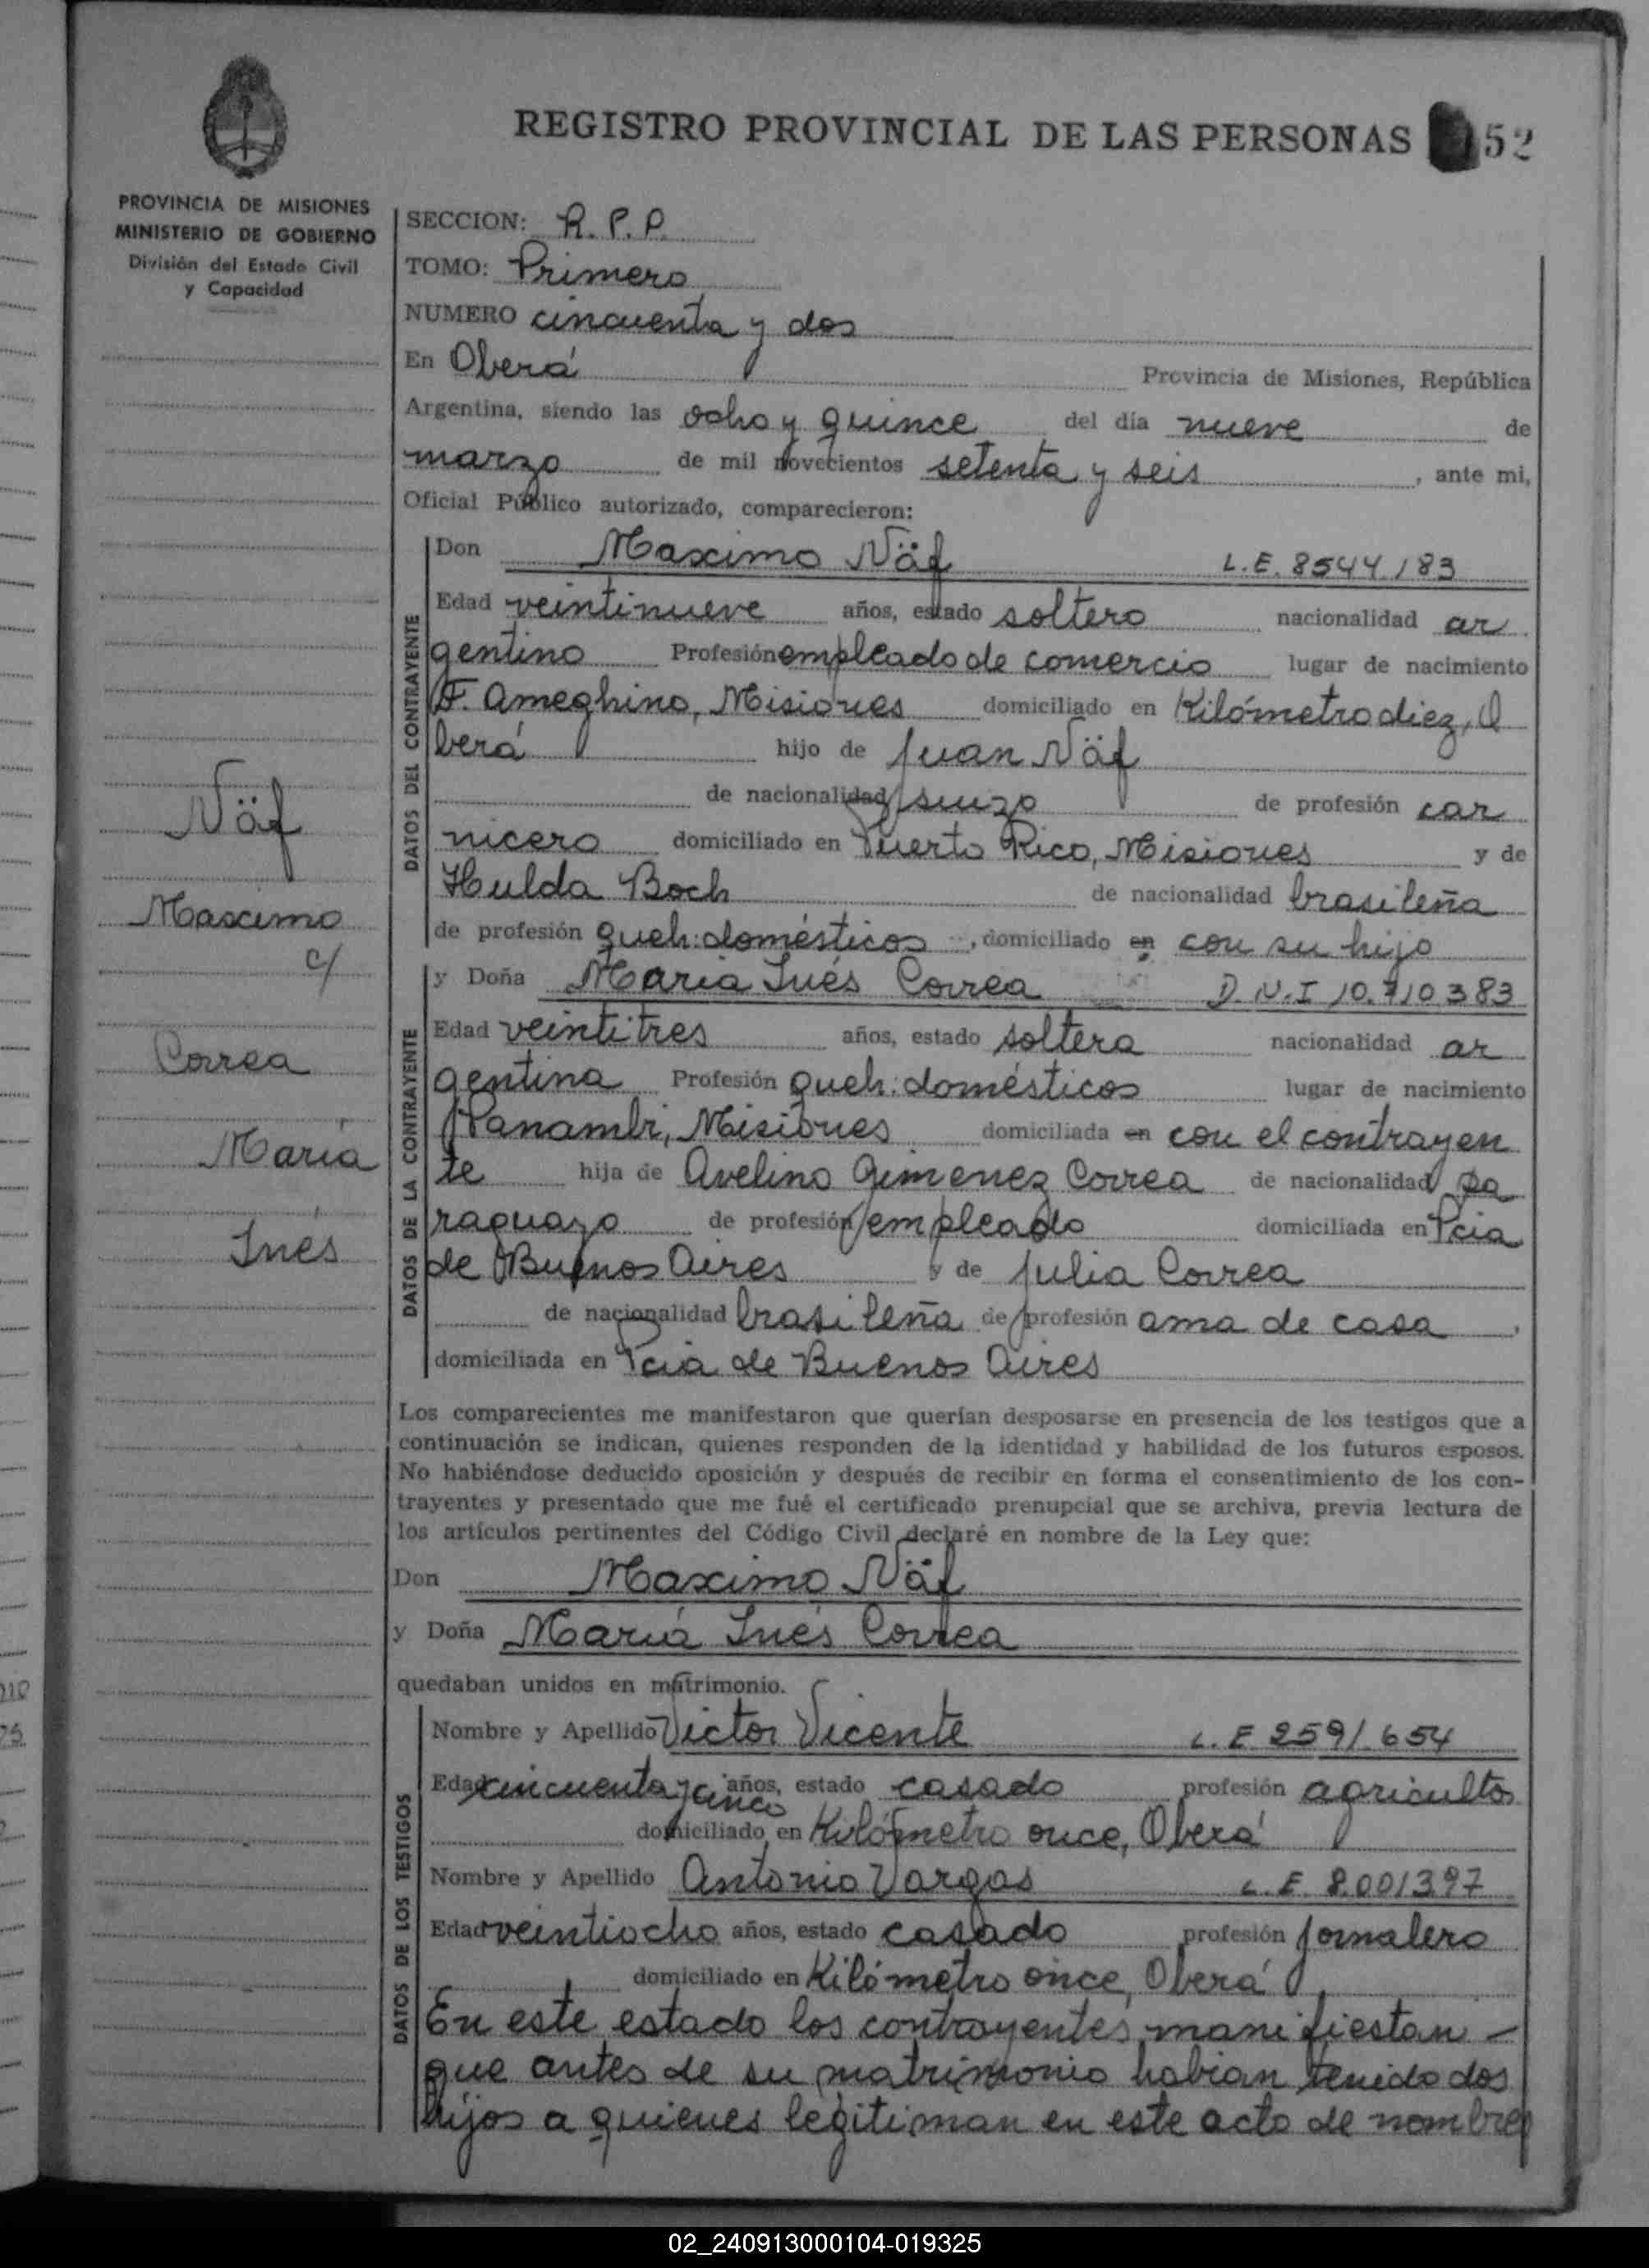 REGISTRO PROVINCIAL DE LAS PERSONAS 52
PROVINCIA DE MISIONES
MINISTERIO DE GOBIERNO
División del Estado Civil
y Capacidad
SECCION: R. P. P.
TOMO: Primero
NUMERO cincuenta y dos
En Oberá Provincia de Misiones, República
Argentina, siendo las ocho y quince del día nueve de
marzo de mil novecientos setenta y seis, ante mi,
Oficial Público autorizado, comparecieron:
DATOS DEL CONTRAYENTE
Don Maximo Näf L.E. 8544.183
Edad veintinueve años, estado soltero nacionalidad ar
gentino Profesión empleado de comercio lugar de nacimiento
F. Ameghino, Misiones domiciliado en Kilómetro diez, O
berá hijo de Juan Näf
de nacionalidad suizo de profesión car
nicero domiciliado en Puerto Rico, Misiones y de
Hulda Boch de nacionalidad brasileña
de profesión queh: domésticos, domiciliado en con su hijo
Näf
Maximo
c/
Correa
María
Inés
DATOS DE LA CONTRAYENTE
y Doña María Inés Correa D.N.I 10.710.383
Edad veintitres años, estado soltera nacionalidad ar
gentina Profesión queh: domésticos lugar de nacimiento
Panambi, Misiones domiciliada en con el contrayen
te hija de Avelino Gimenez Correa de nacionalidad pa
raguayo de profesión empleado domiciliada en Pcia
de Buenos Aires y de Julia Correa
de nacionalidad brasileña de profesión ama de casa,
domiciliada en Pcia de Buenos Aires
Los comparecientes me manifestaron que querían desposarse en presencia de los testigos que a
continuación se indican, quienes responden de la identidad y habilidad de los futuros esposos.
No habiéndose deducido oposición y después de recibir en forma el consentimiento de los con-
trayentes y presentado que me fué el certificado prenupcial que se archiva, previa lectura de
los artículos pertinentes del Código Civil declaré en nombre de la Ley que:
Don Maximo Näf
y Doña María Inés Correa
quedaban unidos en matrimonio.
DATOS DE LOS TESTIGOS
Nombre y Apellido Victor Vicente L.E 2591.654
Edad cincuenta y cinco años, estado casado profesión agricultor
domiciliado en Kilómetro once, Oberá
Nombre y Apellido Antonio Vargas L.E. 8.001397
Edad veintiocho años, estado casado profesión jornalero
domiciliado en Kilómetro once, Oberá
En este estado los contrayentes manifiestan -
que antes de su matrimonio habian tenido dos
hijos a quienes legitiman en este acto de nombres
02_240913000104-019325